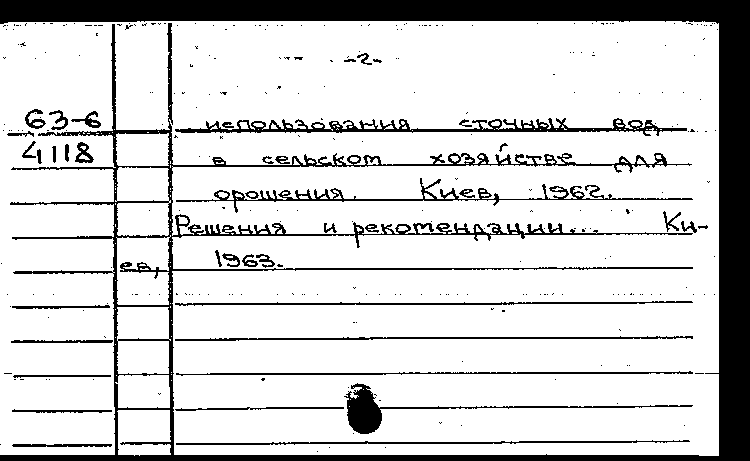 -2-
63-6 использования сточных вод
4118 в сельском хозяйстве для
орошения. Киев, 1962.
Решения и рекомендации... Ки-
ев, 1963.